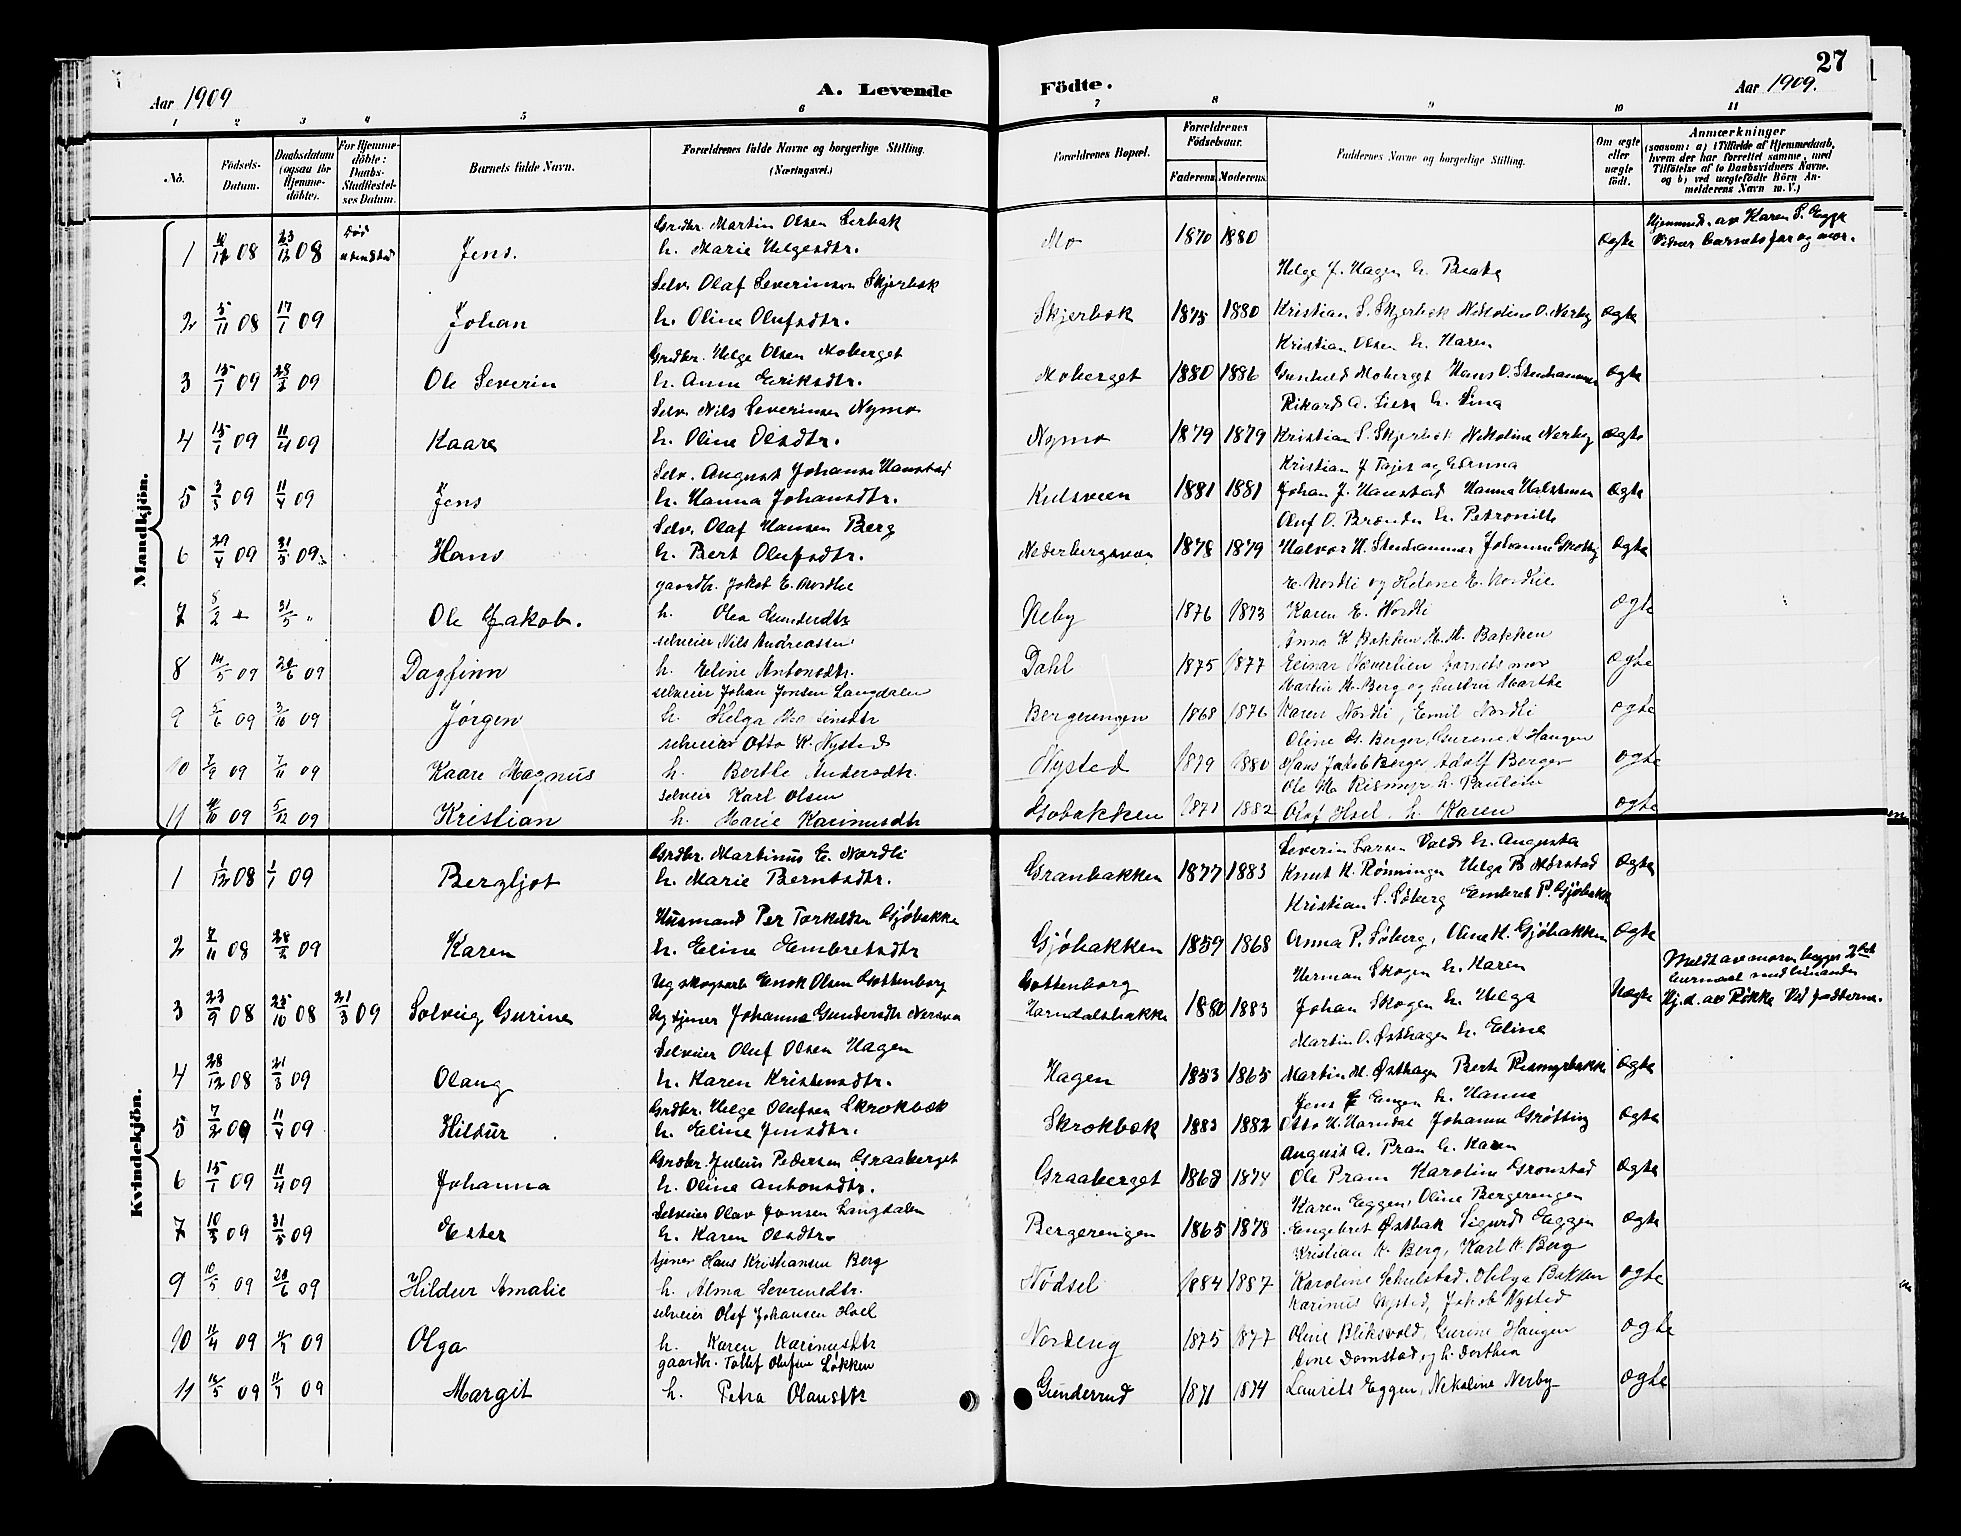 27
Aar 1909
A. Levende
Födte.
Aar 1909.
1 2 3 4 5 6 7 8 9 10 11
No.
Födsels-Datum.
Daabsdatum (ogsaa for Hjemme-döbte).
For Hjemme-döbte: Daabs-Stadfæstel-ses Datum.
Barnets fulde Navn.
Forældrenes fulde Navne og borgerlige Stilling. (Næringsvei.)
Forældrenes Bopæl.
Forældrenes Födselsaar.
Faderens. Moderens.
Faddernes Navne og borgerlige Stilling.
Om ægte eller uægte födt.
Anmærkninger
(saasom: a) i Tilfælde af Hjemmedaab, hvem der har forrettet samme, med Tilföielse af to Daabsvidners Navne. og b) ved uægtefödte Börn Anmelderens Navn m. V.)
Mandkjön.
Grdbr. Martin Olsen Serbak
1 08 23/12 08 Død Jens. h. Marie Helgesdtr. Mo 1870 1880 ægte Hjemmed. av Karen S. Egge
Vidner barnets far og mor.
Selv. Olaf Severinsen Skjerbæk Helge J. Hagen h. Beate
2 5/11 08 17/1 09 Johan h. Oline Olufsdtr. Skjerbæk 1875 1880 Kristian S. Skjerbæk Nikoline O. Nerby ægte
Grdbr. Helge Olsen Moberget Kristian Olsen h. Karen
3 15/1 09 28/2 09 Ole Severin h. Anne Eriksdtr. Moberget 1880 1886 Gunhild Moberget Hans O. Stenhammer ægte
Selv. Nils Severinsen Nymo Rikard A. Lien h. Lina
4 15/1 09 11/4 09 Kaare h. Oline Olsdtr. Nymo 1879 1879 Kristian S. Skjerbæk Nikoline Nerby ægte
Selv. August Johansen Hanstad Kristian J. Tajet og
5 3/3 09 11/4 09 Jens h. Hanna Johansdtr. 1881 1881 Johan J. Hanstad Hanna Halstensen ægte
Selv. Olaf Hansen Berg Oluf O. Brænden h. Petronille
6 29/4 09 31/5 09 Hans h. Bert Olufsdtr. Nederbergsveen 1878 1879 Halvor H. Stenhammer Johanne Grøtting ægte
gaardbr. Jakob E. Nordlie E. Nordli og Helene E. Nordlie
7 8/2 31/5 " Ole Jakob. h. Olea Gundersdtr Neby 1876 1873 Karen E. Nordli ægte
selveier Nils Andreassen Anna K. Bakken M. M. Bakken
8 14/5 09 20/6 09 Dagfinn h. Eline Antonsdtr. Dahl 1875 1877 Einar Næverlien barnets mor ægte
selveier Johan Jonsen Langdalen Martin M. Berg og hustru Marthe
9 5/6 09 3/10 09 Jørgen h. Helga Bergerengen 1868 1876 Karen Nordli, Emil Nordli ægte
selveier Otto K. Nysted Oline M. Berger, Gurine L Haugen
10 7/9 09 7/11 09 Kaare Magnus h. Berthe Andersdtr. Nysted 1879 1880 Hans Jakob Berger, Adolf Berger ægte
selveier Karl Olsen Ole M. Rismyr h. Pauline
11 09 5/12 09 Kristian h. Marie Karinusdtr Gobakken 1871 1882 Olaf Hoel, h. Karen ægte
Kvindekjön.
Grdbr. Martinus E. Nordli Severin Larsen Volds h. Augusta
1 1/12 08 1/1 09 Bergljot h. Marie Berntsdtr. Granbakken 1877 1883 Knut K. Rønningen Helga B Mørstad ægte
Husmand Per Torkeldsen Gjøbakke Kristian S. Søberg Embret P. Gjøbakk
2 08 28/2 09 Karen h. Eline Embretsdtr Gjøbakken 1859 1868 Anna P. Søberg, Oline H. Gjøbakken ægte
Ug skogsarb Enok Olsen Gottenborg Gottenborg Herman Skogen h. Karen Meldt av moren begges 2det
leiermaal med hinanden
3 23/9 08 25/10 08 21/3 09 Solveig Gurine Ug tjener Johanne Gundersdtr Nersveen Harndalsbakke 1880 1883 Johan Skogen h. Helga Uægte Hj.d. av Rikke Ved jordterne.
Selveier Oluf Olsen Hagen Martin O. Østhagen h. Eline
4 28/12 08 21/3 09 Olaug h. Karen Kristensdtr. Hagen 1853 1865 Martin M. Østhagen Berte Rismyrbakke ægte
Grdbr. Helge Olufsen Skrokbæk Jens E Engen h. Hanna
5 7/2 09 11/4 09 Hildur h. Eline Jensdtr. Skrokbæk 1883 1882 Otto H. Harndal Johanne Grøtting ægte
Grdbr. Julius Pedersen Graaberget August A. Pran h. Karen
6 15/1 09 11/4 09 Johanna h. Oline Antonsdtr. Graaberget 1868 1874 Ole Pram Karoline Grønstad ægte
Selveier Olav Jonsen Langdalen Karen Eggen, Oline Bergerengen
7 10/3 09 31/5 09 Ester h. Karen Olsdtr. Bergerengen 1865 1878 Engebret Østbak Sigurd Eggen ægte
tjener Hans Kristiansen Berg Kristian K. Berg, Karl K. Berg
9 10/5 09 20/6 09 Hildur Amalie h. Alma Severinsdtr. Nødsel 1884 1887 Karoline Schulstad, Helga Bakken ægte
selveier Olaf Johansen Hoel Karinus Nysted, Jakob Nysted
10 11/4 09 09 Olga h. Karen Karinusdtr Nordeng 1875 1877 Oline Bliksvold, Gurine Haugen ægte
gaardbr. Tollef Olufsen Løkken Arne Domstad og h. Dorthea
11 09 09 Margit h. Petra Olausdtr Gunderrud 1871 1874 Laurits Eggen, Nikoline Nerby ægte